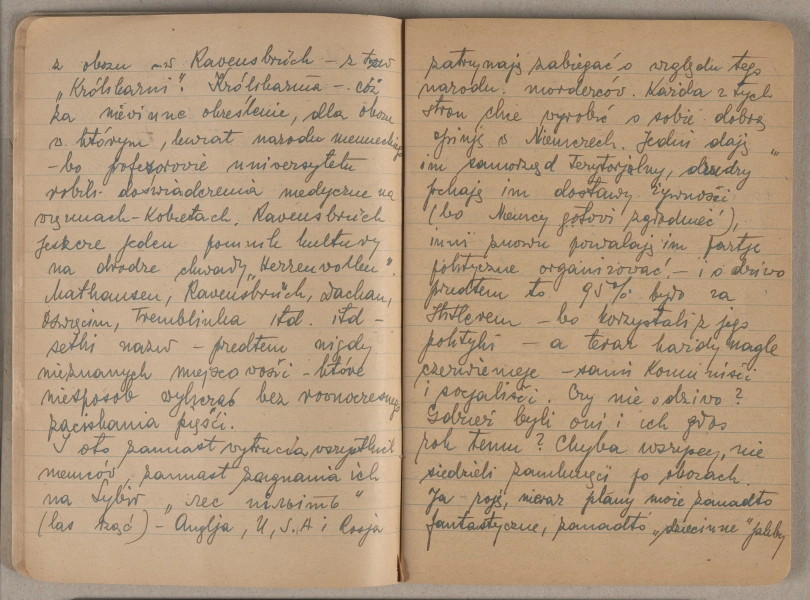 z obozu -w Ravensbrück - z tzw
„Królikarni". Królikarnia - cóż
za niewinne określenie, dla obozu
w którym, kwiat narodu niemieckiego
- bo pofesorovie uniwersytetu
robili doświadczenia medyczne na
więźniach - Kobietach. Ravensbrück
jeszcze jeden pomnik kultury
na drodze chwały „Herrenvolken".
Mathausen, Ravensbrück, Dachau,
Oświęcim, Tremblinka itd. itd -
setki nazw - predtem nigdy
nieznanych miejscowości - które
niesposób wyliczać bez roonoczesnego
zaciskania pięści.
I oto zamiast wytrucia wszystkich
niemców zamiast zagnania ich
na Sybir „лес пильить"
(las rżąć) - Anglja, U.S.A i Rosja
zatrzynają zabiegać o względu tego
narodu - morderców. Każda z tych
stron chce wyrobić o sobie dobrą
opinję w Niemczech. Jedni dają
im samorząd Terytorjalny, drudzy
pchają im dostawy żywności
(bo Niemcy gotovi zgłodnieć),
inni znowu pozwalają im partje
polityczne organizować. - i o dziwo
predtem to 95% było za
Hitlerem - bo korzystali z jego
polityki - a teraz każdy nagle
czerwienieje - sami Komuniści
i socjaliści. Czy nie dziwo?
Gdzież byli oni i ich głos
rok temu? Chyba wszyscy, nie
siedzieli zamknięci po obozach.
Ja - roję, nieraz plany może zanadto
fantastyczne, zanadto „dziecinne" jakby